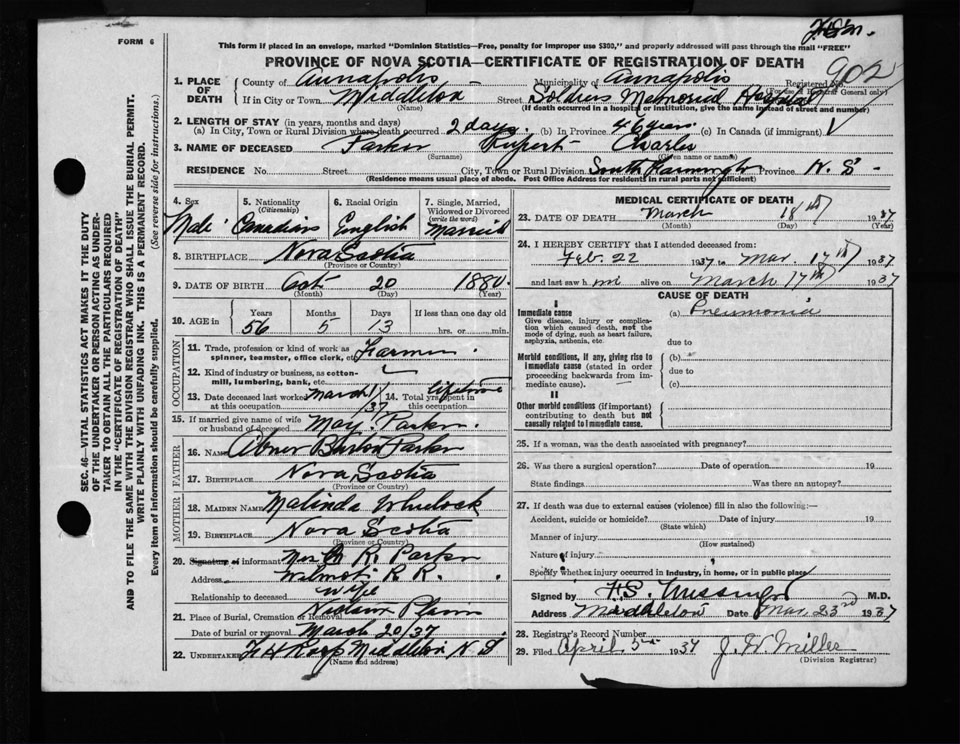 FORM 6
This form if placed in an envelope, marked "Dominion Statistics—Free, penalty for improper use $300," and properly addressed will pass through the mail "FREE"
PROVINCE OF NOVA SCOTIA—CERTIFICATE OF REGISTRATION OF DEATH
902
1. PLACE OF DEATH County of Annapolis Municipality of Annapolis Registered No.
If in City or Town Middleton Street Soldiers Memorial Hospital
(Name) (If death occurred in a hospital or institution, give the name instead of street and number)
2. LENGTH OF STAY (in years, months and days)
(a) In City, Town or Rural Division where death occurred 2 days. (b) In Province 46 years. (c) In Canada (if immigrant)
3. NAME OF DECEASED Parker Rupert Charles
(Surname) (Given name or names)
RESIDENCE No. Street City, Town or Rural Division South Farmington Province N. S.
(Residence means usual place of abode. Post Office Address for residents in rural parts not sufficient)
4. Sex 5. Nationality (Citizenship) 6. Racial Origin 7. Single, Married, Widowed or Divorced (write the word)
Male Canadian English Married
8. BIRTHPLACE Nova Scotia
(Province or Country)
9. DATE OF BIRTH Oct 20 1880.
(Month) (Day) (Year)
10. AGE in Years Months Days If less than one day old
56 5 13 hrs. or min.
OCCUPATION
11. Trade, profession or kind of work as spinner, teamster, office clerk, etc. Farmer.
12. Kind of industry or business, as cotton-mill, lumbering, bank, etc.
13. Date deceased last worked at this occupation March 1/37 14. Total yrs. spent in this occupation lifetime
15. If married give name of wife or husband of deceased May Parker.
FATHER
16. NAME Abner Burton Parker
17. BIRTHPLACE Nova Scotia
(Province or Country)
MOTHER
18. MAIDEN NAME Malinda Wheelock
19. BIRTHPLACE Nova Scotia
(Province or Country)
20. Signature of informant R. Parker
Address Wilmot R. R.
Relationship to deceased Wife
21. Place of Burial, Cremation or Removal
Date of burial or removal March 20/37
22. UNDERTAKER Middleton N. S.
(Name and address)
MEDICAL CERTIFICATE OF DEATH
23. DATE OF DEATH March 18th 1937
(Month) (Day) (Year)
24. I HEREBY CERTIFY that I attended deceased from:
Feb. 22 1937 to Mar. 17th 1937
and last saw him alive on March 17th 1937
CAUSE OF DEATH
I
Immediate cause (a) Pneumonia
Give disease, injury or complication which caused death, not the mode of dying, such as heart failure, asphyxia, asthenia, etc.
due to
Morbid conditions, if any, giving rise to immediate cause (stated in order proceeding backwards from immediate cause).
(b)
due to
(c)
II
Other morbid conditions (if important) contributing to death but not causally related to immediate cause.
25. If a woman, was the death associated with pregnancy?
26. Was there a surgical operation? Date of operation 19
State findings Was there an autopsy?
27. If death was due to external causes (violence) fill in also the following:—
Accident, suicide or homicide? Date of injury 19
(State which)
Manner of injury
(How sustained)
Nature of injury
Specify whether injury occurred in industry, in home, or in public place
Signed by F. S. Messenger M.D.
Address Middleton Date Mar. 23rd 1937
28. Registrar's Record Number
29. Filed April 5th 1937 J. W. Miller
(Division Registrar)
SEC. 46—VITAL STATISTICS ACT MAKES IT THE DUTY
OF THE UNDERTAKER OR PERSON ACTING AS UNDER-
TAKER TO OBTAIN ALL THE PARTICULARS REQUIRED
IN THE "CERTIFICATE OF REGISTRATION OF DEATH"
AND TO FILE THE SAME WITH THE DIVISION REGISTRAR WHO SHALL ISSUE THE BURIAL PERMIT.
WRITE PLAINLY WITH UNFADING INK. THIS IS A PERMANENT RECORD.
Every item of information should be carefully supplied. (See reverse side for instructions.)